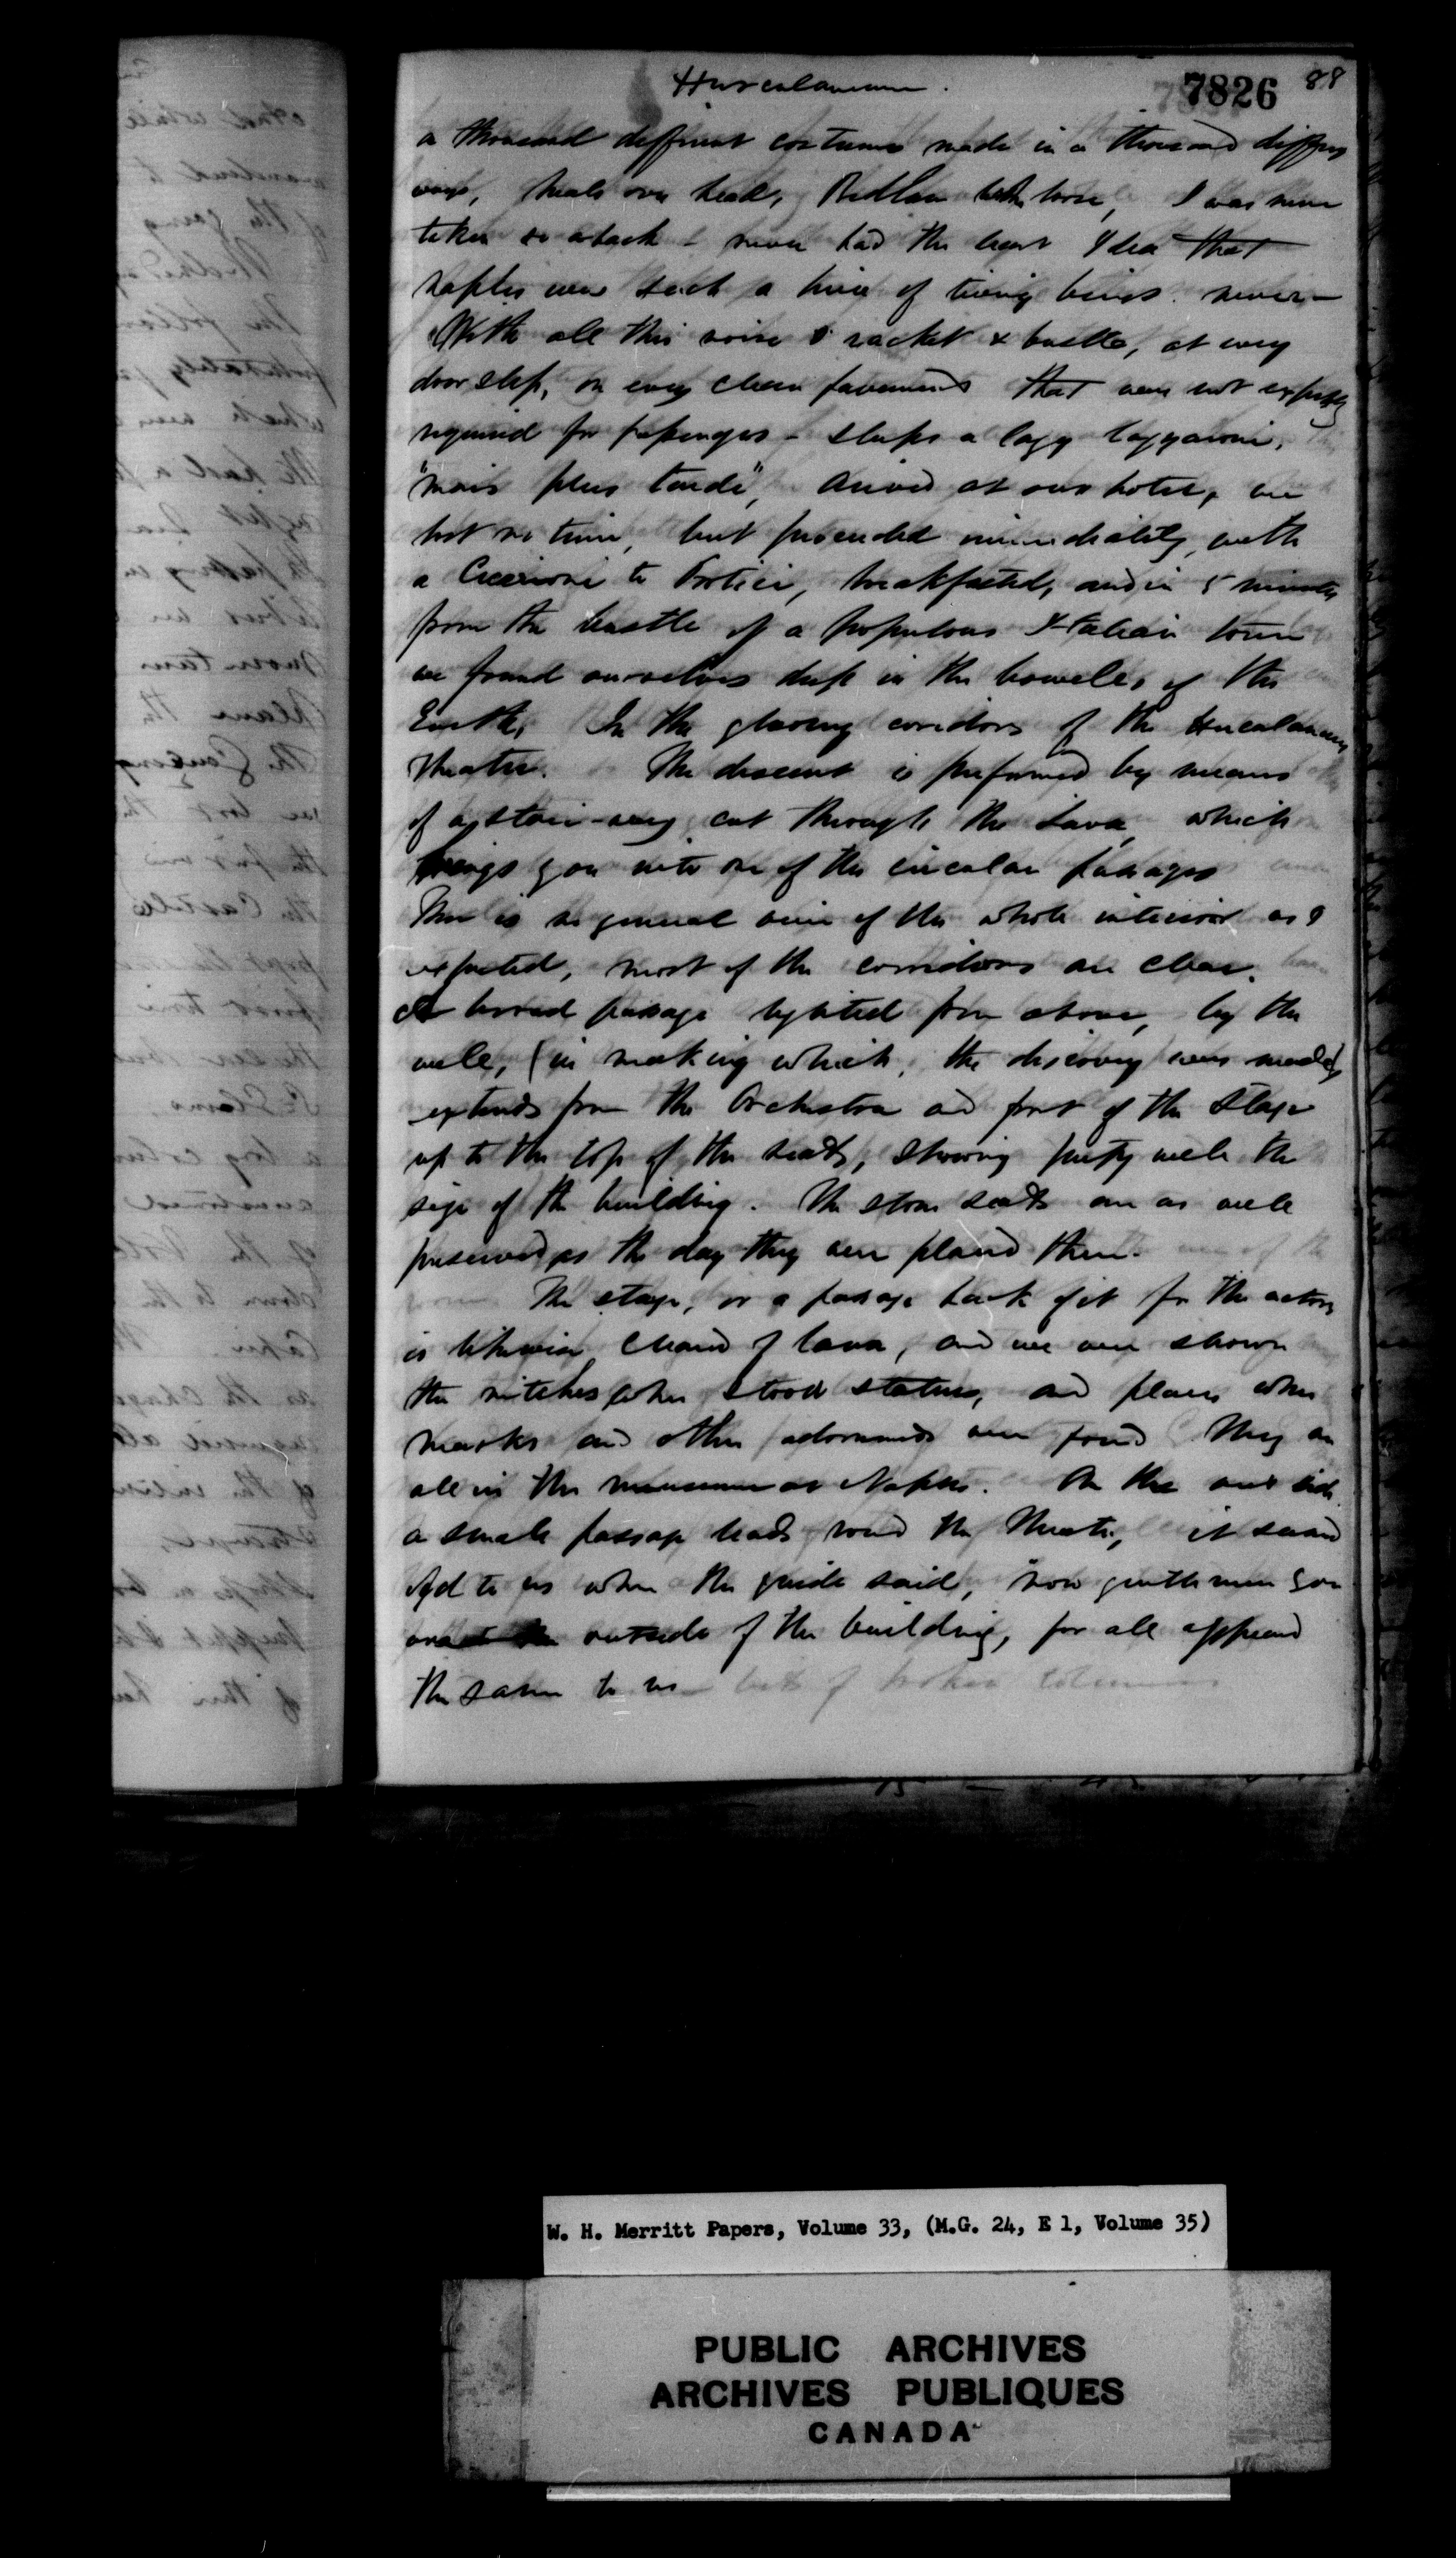 Hurculaneum.
7826 88
a thousand different costumes made in a thousand differ
ways, heals over head, Bedlam broke loose, I was never
taken so aback - never had the least Idea that
Naples was such a hive of living beings. never -
With all this noise & racket & bustle, at every
door step, on every clean pavement that was not expressly
required for passengers - sleeps a lazy lazzaroni,
"mais plus tarde", Arived at our hotel, we
lost no time, but proceeded immediately, with
a Ciceroni to Portici, breakfasted, and in 5 minutes
from the bustle of a populous Italian town
we found ourselves deep in the bowels, of the
Earth, In the gloomy coridors of the Herculaneum
Theatre. The descent is preformed by means
of a stair-way cut through the Lava, which
brings you into one of the circular passages
There is no general view of the whole interior as I
expected, most of the corridors are clear.
A broad passage lighted from above, by the
well, (in making which, the discovery was made)
extends from the Orchestra and front of the Stage
up to the top of the seats, showing pretty well the
size of the building. The stone seats are as well
preserved as the day they were placed there.
The stage, or a passage back of it for the actors
is likewise cleared of lava, and we were shown
the nitches where stood statues, and places where
masks and other adornments were found They are
all in the museum at Naples. On the out side
a small passage leads round the Theatre, it seemed
odd to us when the guide said, "now gentlemen you
are outside of the building, for all appeared
the same to us
W. H. Merritt Papers, Volume 33, (M.G. 24, E 1, Volume 35)
PUBLIC ARCHIVES
ARCHIVES PUBLIQUES
CANADA